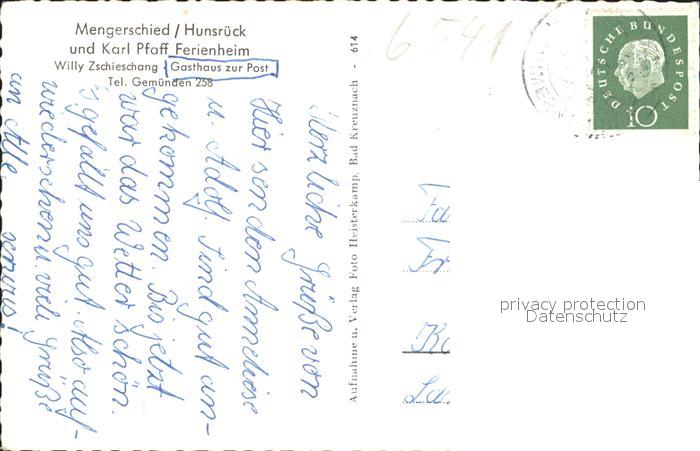 Mengerschied / Hunsrück
und Karl Pfaff Ferienheim
Willy Zschieschang - Gasthaus zur Post
Tel. Gemünden 258
Herzliche Grüße von
Hier senden Anneliese
u. Adolf. Sind gut an-
gekommen. Bis jetzt
war das Wetter schön.
gefällt uns gut. Also auf-
wiedersehen u. viele Grüße
an Alle. servus!
Aufnahme u. Verlag Foto Heisterkamp, Bad Kreuznach - 614
6541
DEUTSCHE BUNDESPOST
10
Fa
Fr
privacy protection
Datenschutz